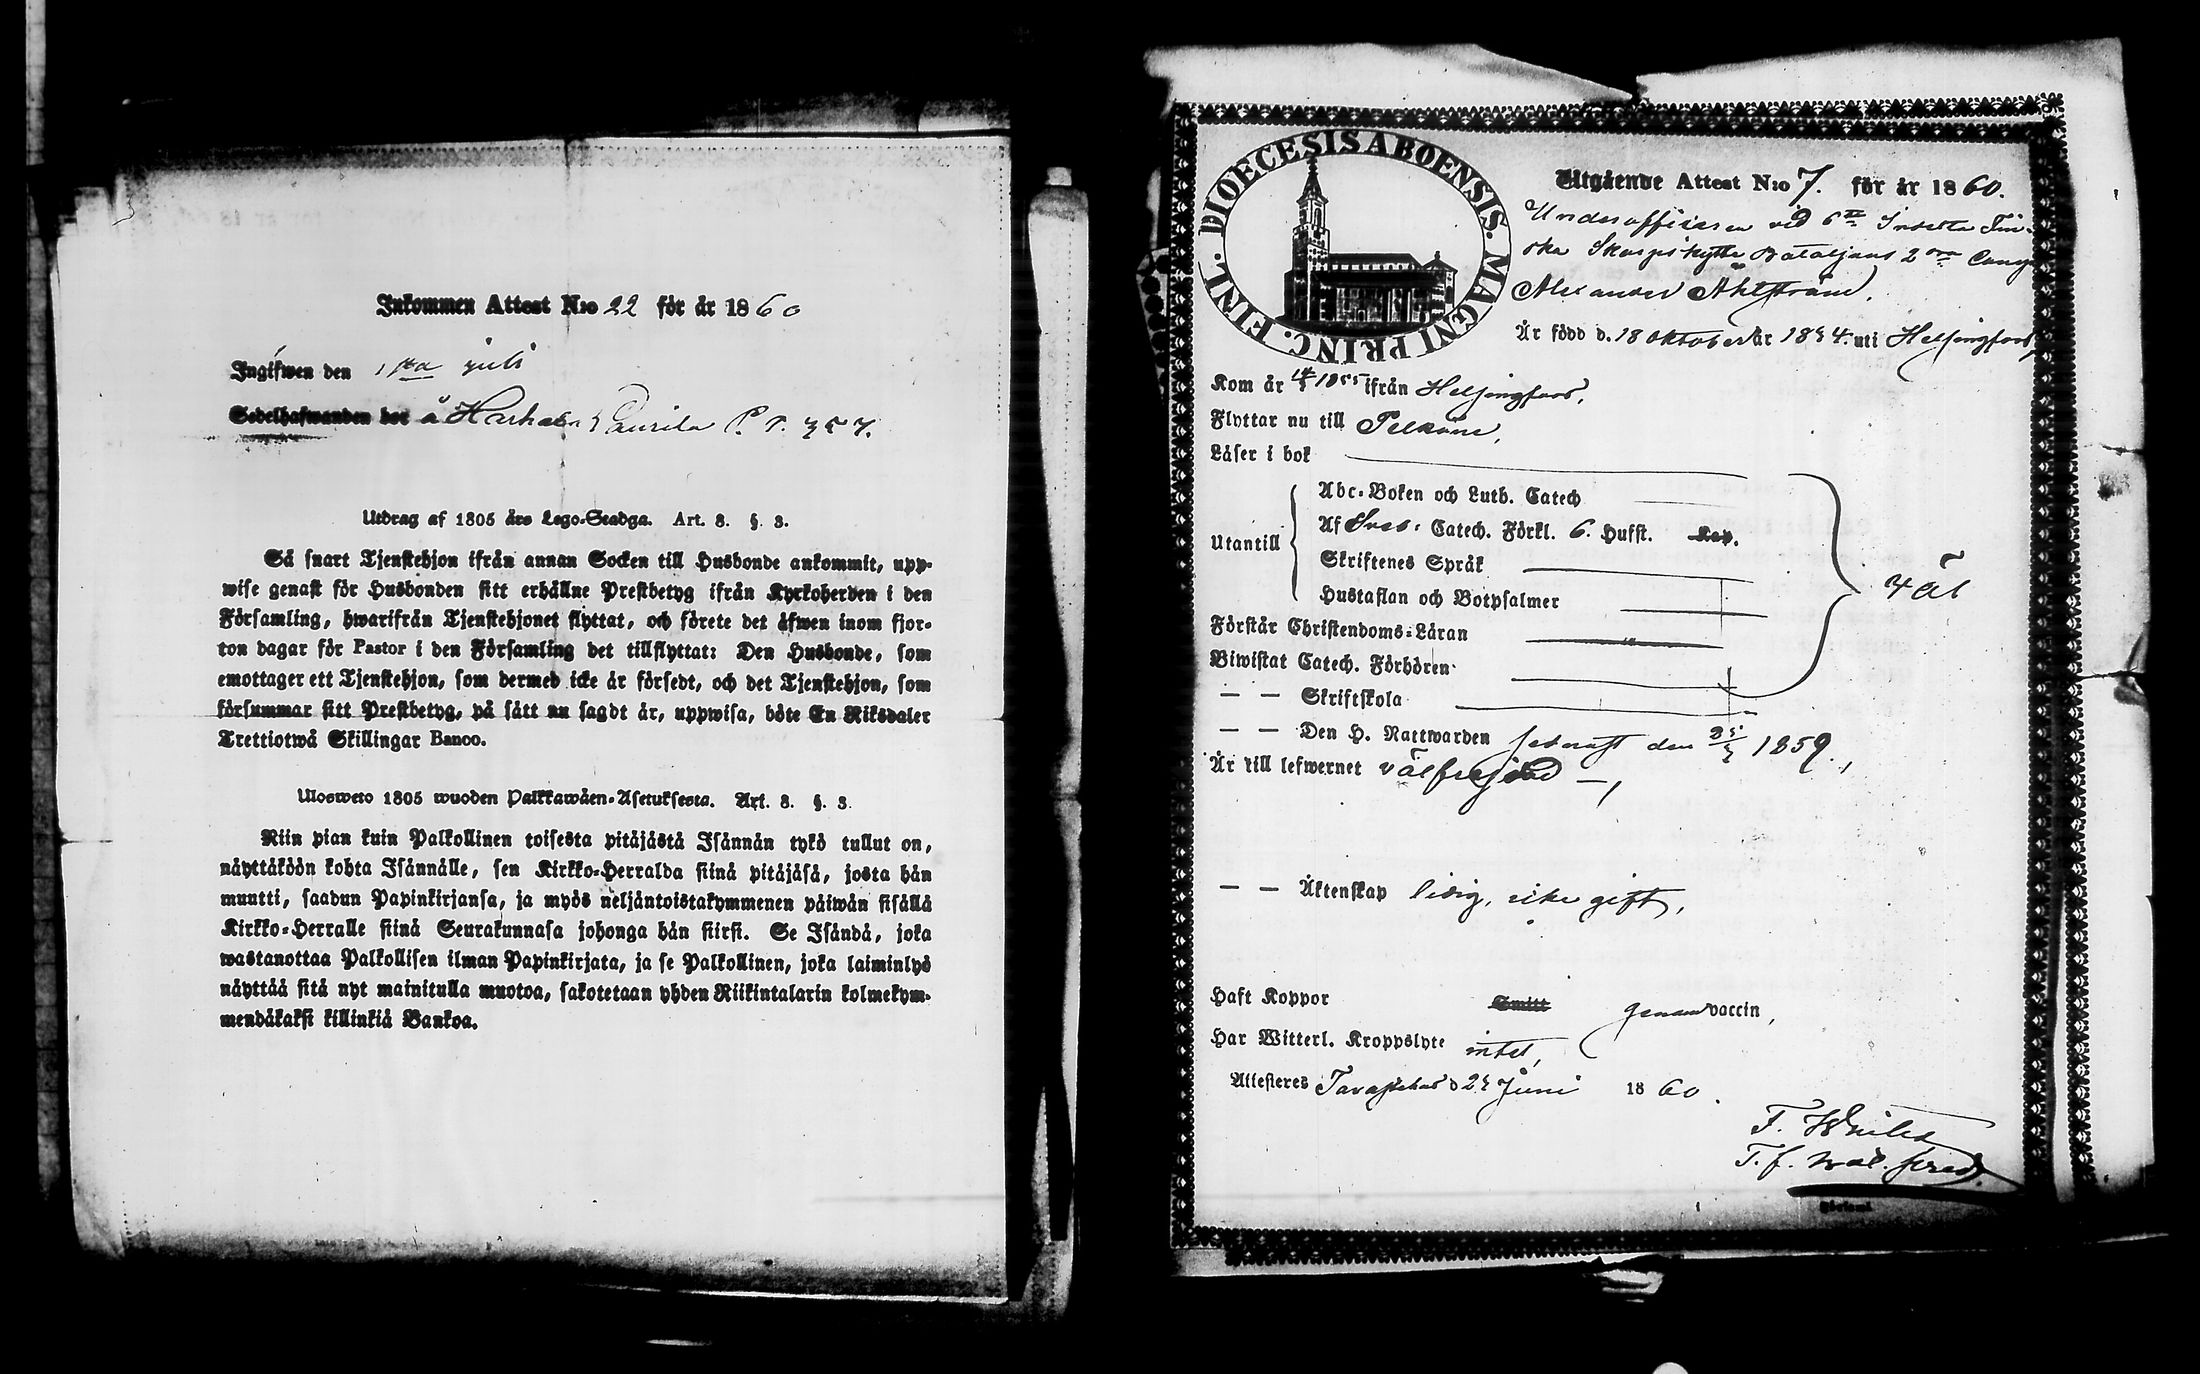 Inkommen Attest N:o 22 för år 1860
Ingifwen den 1sta juli
Sedelhafwanden bor å Harhala Laurila P. P. 357.
Utdrag af 1805 års Lego-Stadga. Art. 3. §. 3.
Så snart Tjenstehjon ifrån annan Socken till Husbonde ankommit, upp-
wise genast för Husbonden sitt erhållne Prestbetyg ifrån Kyrkoherden i den
Församling, hwarifrån Tjenstehjonet flyttat, och förete det äfwen inom fjor-
ton dagar för Pastor i den Församling det tillflyttat: Den Husbonde, som
emottager ett Tjenstehjon, som dermed icke är försedt, och det Tjenstehjon, som
försummar sitt Prestbetyg, på sätt nu sagdt är, uppwisa, böte En Riksdaler
Trettiotwå Skillingar Banco.
Ulosweto 1805 wuoden Palkkawäen-Asetuksesta. Art. 3. §. 3.
Niin pian kuin Palkollinen toisesta pitäjästä Isännän tykö tullut on,
näyttäköön kohta Isännälle, sen Kirkko-Herralda siinä pitäjäsä, josta hän
muutti, saadun Papinkirjansa, ja myös neljäntoistakymmenen päiwän sisällä
Kirkko-Herralle siinä Seurakunnasa johonga hän siirsi. Se Isändä, joka
wastanottaa Palkollisen ilman Papinkirjata, ja se Palkollinen, joka laiminlyö
näyttää sitä nyt mainitulla muotoa, sakotetaan yhden Riikintalarin kolmekym-
mendäkaksi killinkiä Bankoa.
DIOECESIS ABOENSIS. MAGNI PRINC. FINL.
Utgående Attest N:o 7. för år 1860.
Underofficieren vid 6te Indelta Fin-
ska Skarpskytte Bataljons 2dra Comp
Alexander Åhlstrand.
Är född d. 18 oktober år 1834. uti Helsingfors,
Kom år 1855 ifrån Helsingfors,
Flyttar nu till Pelkäne,
Läser i bok
Abc-Boken och Luth. Catech
Utantill Af Sveb: Catech. Förkl. 6. Hufst. Kap.
Skriftenes Språk
Hustaflan och Botpsalmer
Förstår Christendoms-Läran
Biwistat Catech. Förhören
— — Skriftskola
— — Den H. Nattwarden sednast den 1859.,
Är till lefwernet välfrejdad —,
— — Äktenskap ledig, icke gift,
Haft Koppor Smitt genom vaccin,
Har Witterl. Kroppslyte intet,
Attesteres Tavastehus d 24 Juni 1860.